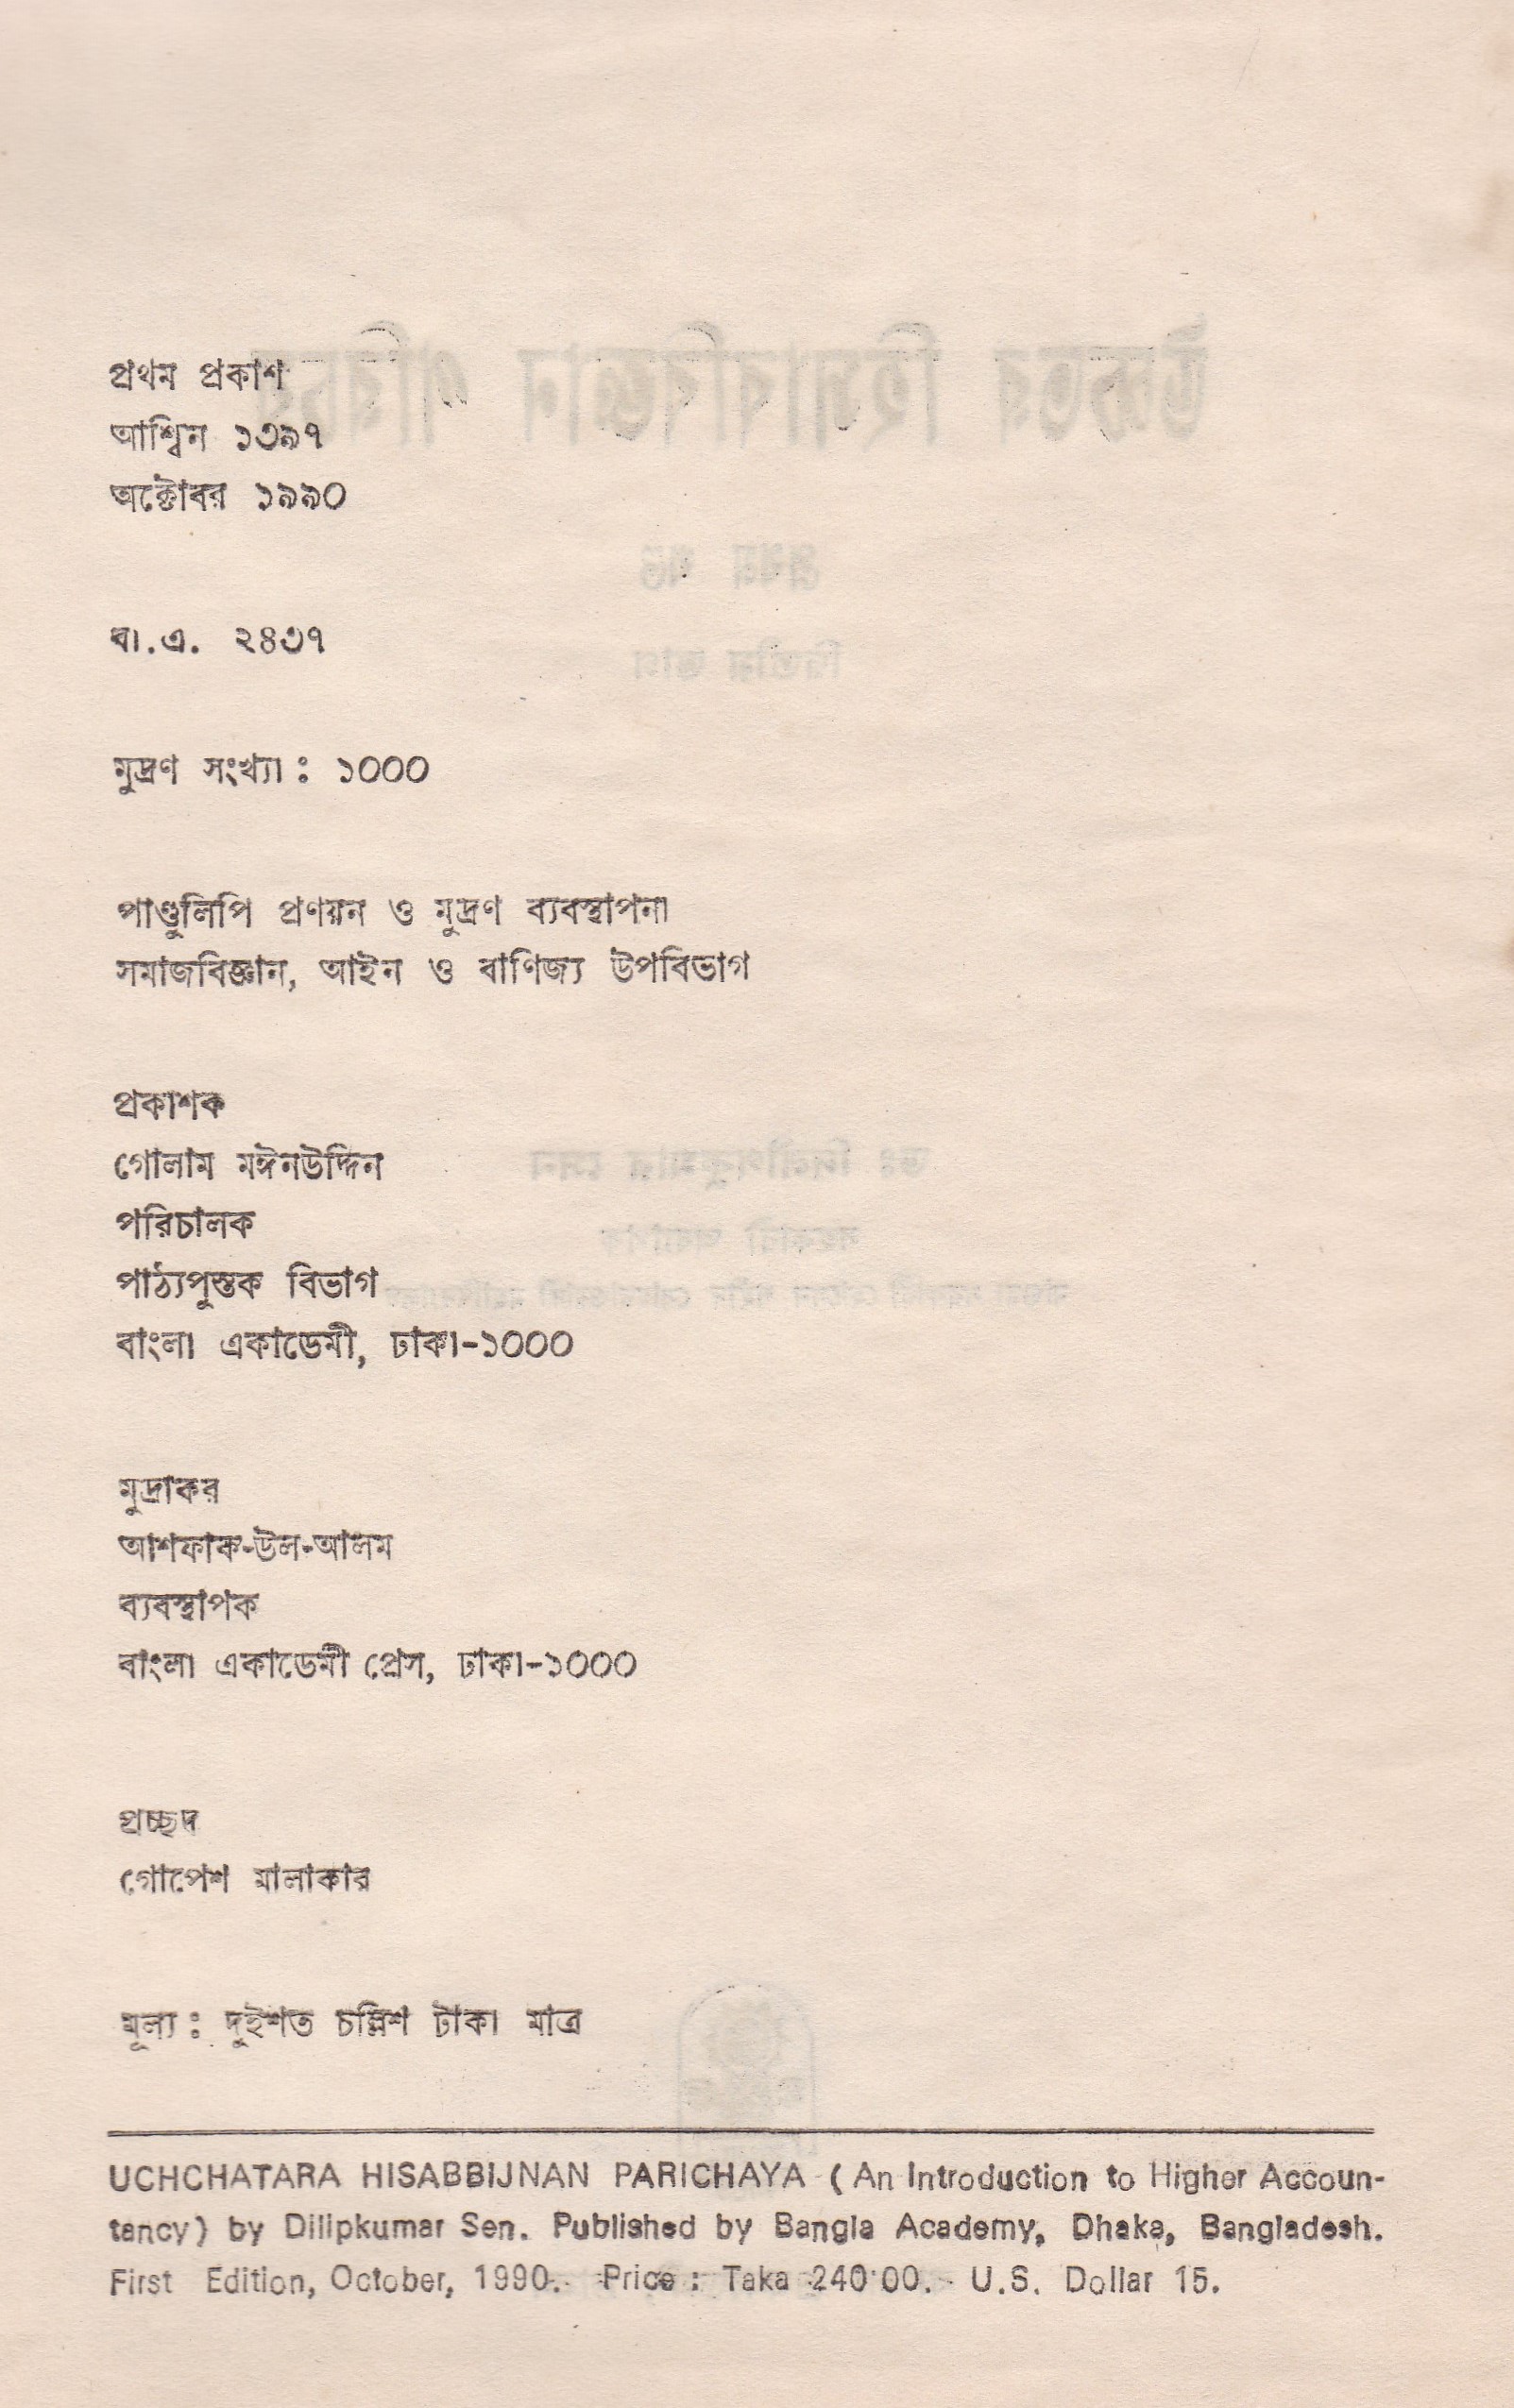 প্রথম প্রকাশ
আশ্বিন ১৩৯৭
অক্টোবর ১৯৯০
বা.এ. ২৪৩৭
মুদ্রণ সংখ্যা : ১০০০
পাণ্ডুলিপি প্রণয়ন ও মুদ্রণ ব্যবস্থাপনা
সমাজবিজ্ঞান, আইন ও বাণিজ্য উপবিভাগ
প্রকাশক
গোলাম মঈনউদ্দিন
পরিচালক
পাঠ্যপুস্তক বিভাগ
বাংলা একাডেমী, ঢাকা-১০০০
মুদ্রাকর
আশফাক-উল-আলম
ব্যবস্থাপক
বাংলা একাডেমী প্রেস, ঢাকা-১০০০
প্রচ্ছদ
গোপেশ মালাকার
মূল্য : দুইশত চল্লিশ টাকা মাত্র
UCHCHATARA HISABBIJNAN PARICHAYA (An Introduction to Higher Accoun-
tancy) by Dilipkumar Sen. Published by Bangla Academy, Dhaka, Bangladesh.
First Edition, October, 1990. Price : Taka 240.00. U.S. Dollar 15.